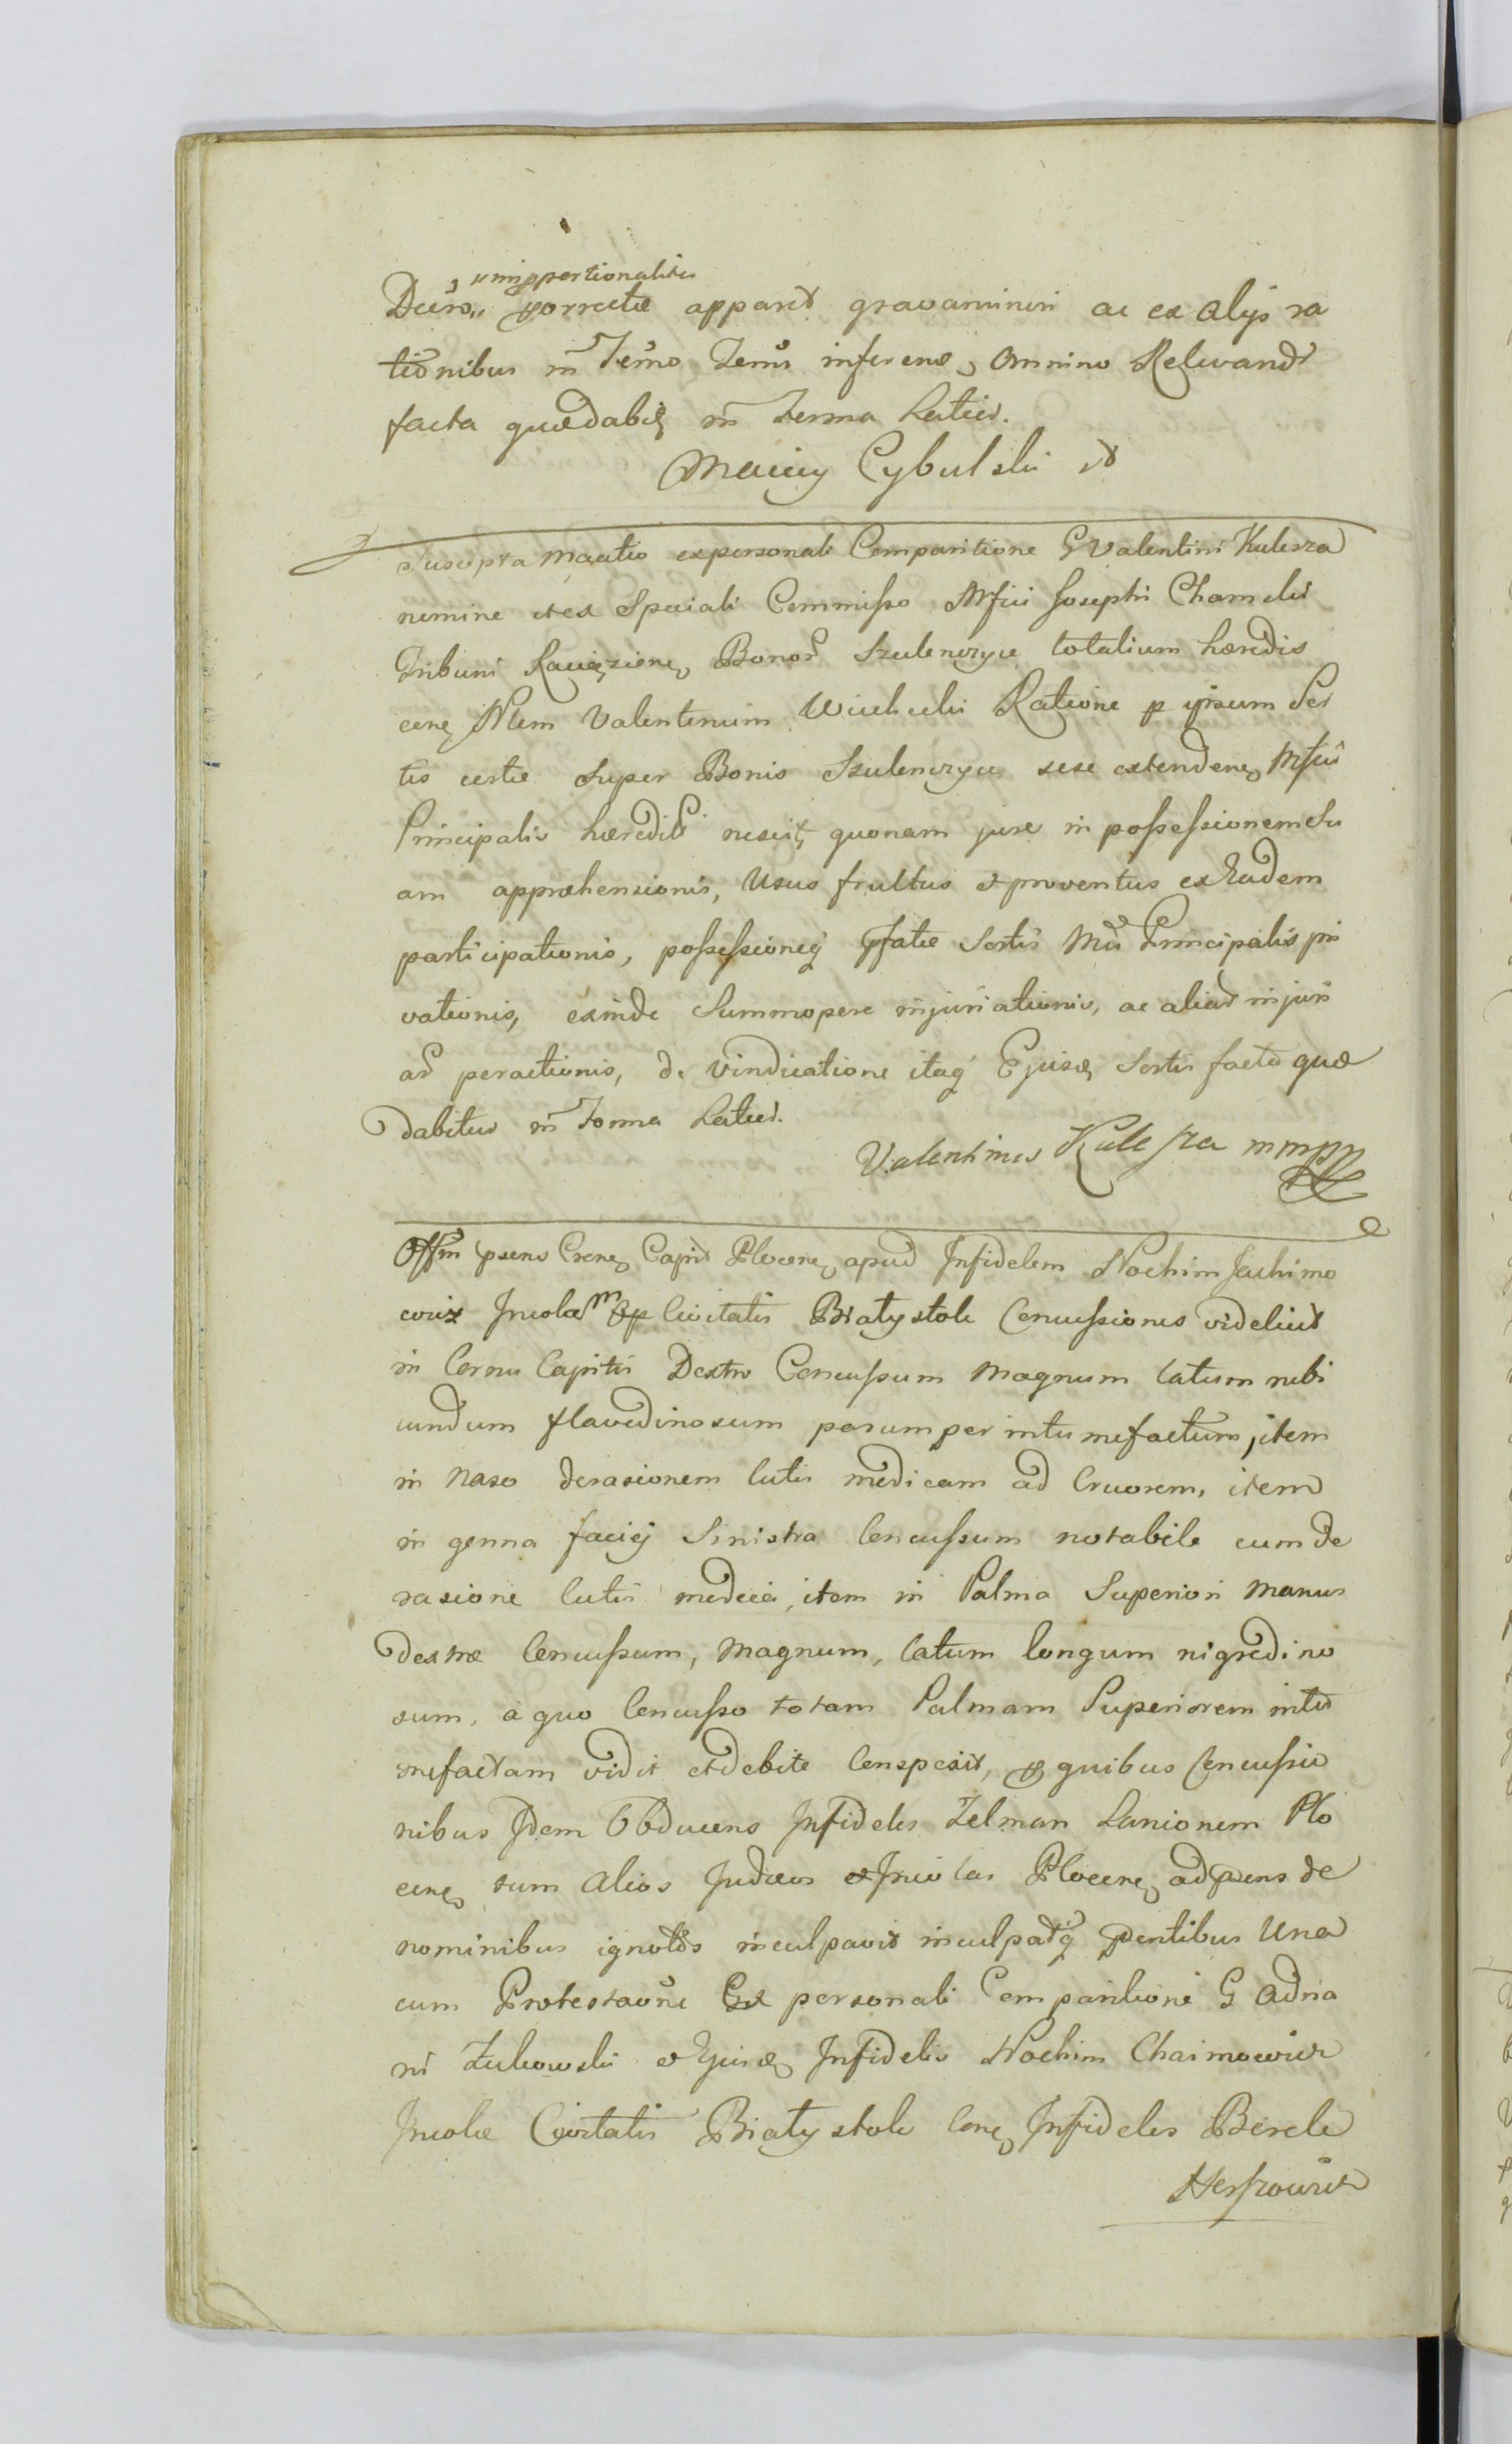 improportionaliter
porrectæ apparet gravaminin ac ex alijs ra
tionibus in Termo inferen, omnino Relevand
facta quædabit in forma Latiori.
Maciey Cybulski
Suscepta Mactio ex personali Comparitione G Valentini Kulesza
nomine et ex Speciali Commisso Mfici Josephi Chamski
Tribuni Raciązien, Bonor Szulenczyce totalium hæredis
cenę Nlem Valentinum Ratione p ipsum Sor
tis certæ Super Bonis Szulenczyce sese extenden, Mfici
Principalis hæredit nescit quonam jure in possessionem Su
am appræhensionis, Usus fructus et proventus ex Eadem
participationis, possessionisq præfatæ Sortis Mci Principalis pri
vationis, exinde Summopere injuriationis, ac aliar injuri
ar peractionis, de vindicatione itaq Ejusd Sortis facta quæ
dabitur in Forma Latiori.
Valentinus Kulesza mmpp
Offm præns Crense Capit Plocen, apud Infidelem Nochim Jachimo
wicz Incolam Civitatis Białystok Concussiones videlicet
in Cornu Capitis Dextro Concussum Magnum latum rubi
cundum flavedinosum parumper intumefactum, item
in Naso derasionem Cutis medicam ad Cruorem, item
in genna faciej Sinistra Concussum notabile cum de
rasione Cutis medica, item in Palma Superiori Manus
dextræ Concussum, Magnum, latum longum nigredino
sum, a quo Concusso totam Palmam Superiorem intu
mefactam vidit et debite Conspexit, pro quibus Concussio
nibus Idem Obducens Infidelis Zelman Lanionem Plo
cen, tum alios Judæos et Incolas Plocen, ad præns de
nominibus ignotos inculpavit inculpatq præntibus Una
cum Protestaone Ex personali Comparitione G Adria
ni Żukowski et Ejusd Infidelis Nochim Chaimowicz
Incolæ Civitatis Białystok Con, Infideles Berek
Herszowicz